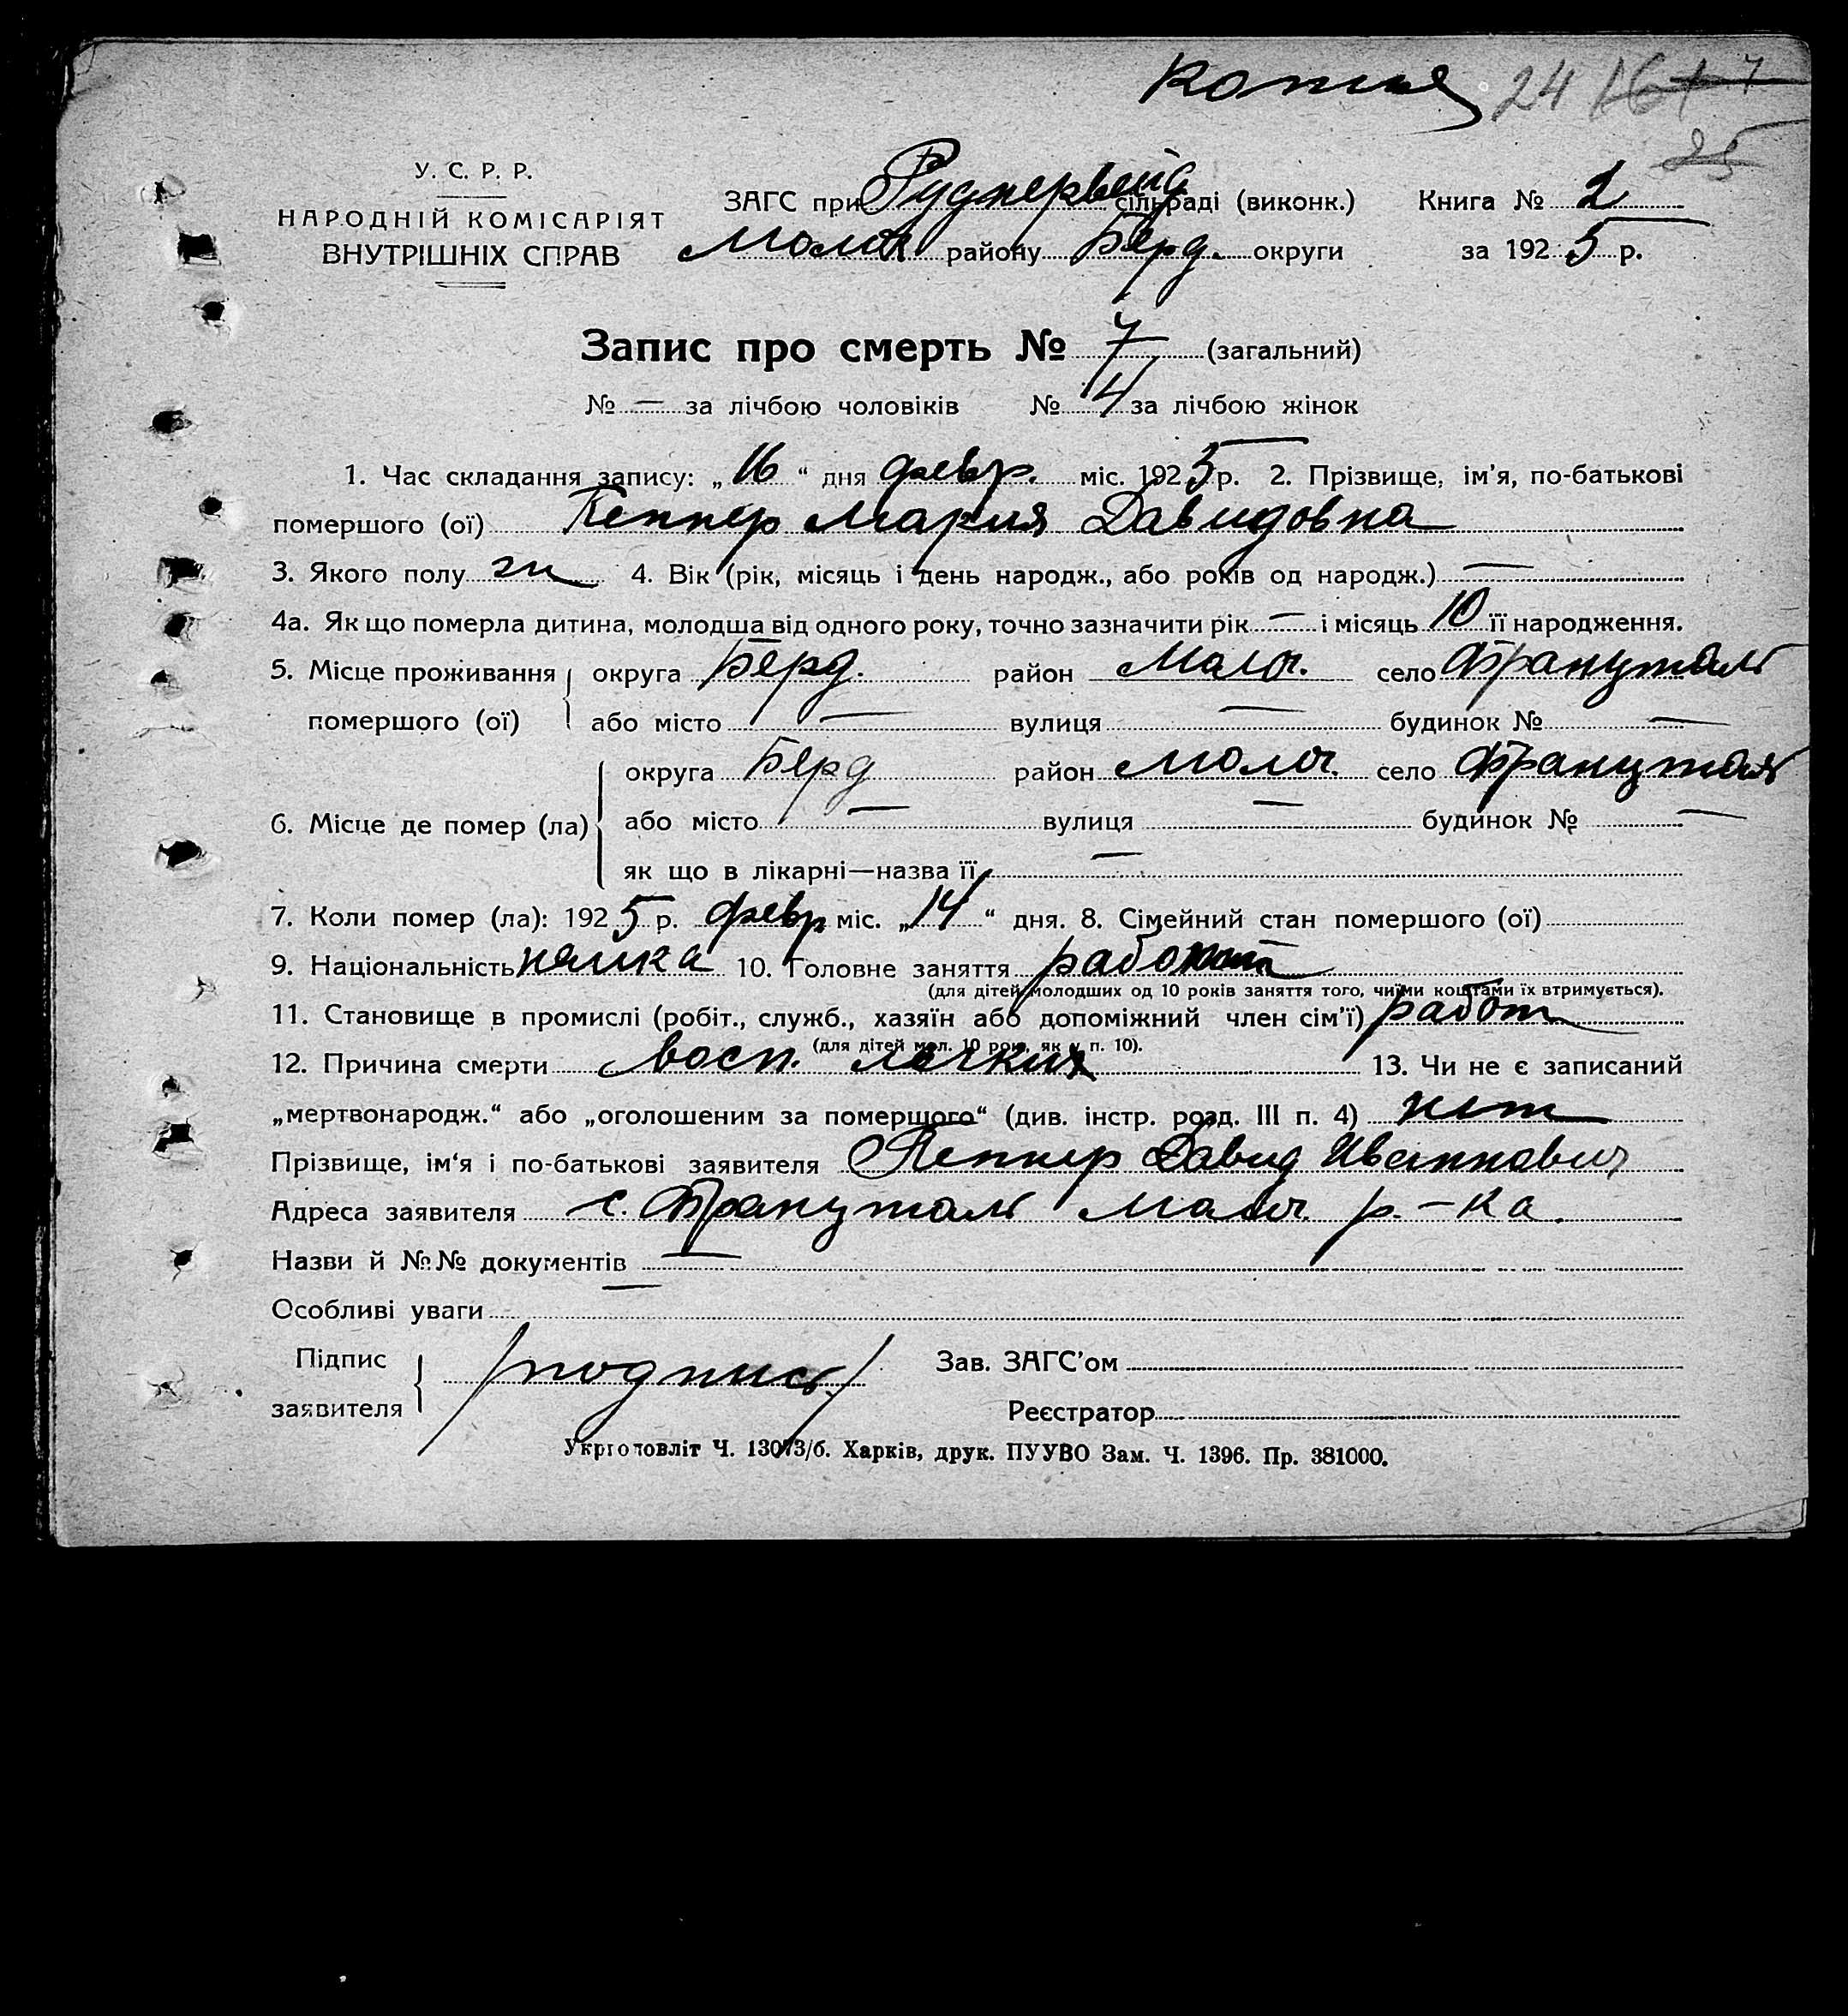 копия 24 16
25
У. С. Р. Р.
НАРОДНІЙ КОМІСАРІЯТ
ВНУТРІШНІХ СПРАВ
ЗАГС при Руднервейд сільраді (виконк.) Книга № 2
Молоч району Берд. округи за 1925 р.
Запис про смерть № 7 (загальний)
№ — за лічбою чоловіків № 4 за лічбою жінок
1. Час складання запису: „16“ дня февр. міс. 1925 р. 2. Прізвище, ім'я, по-батькові
помершого (ої) Теппер Мария Давидовна
3. Якого полу ж 4. Вік (рік, місяць і день народж., або років од народж.) —
4а. Як що померла дитина, молодша від одного року, точно зазначити рік — і місяць 10 її народження.
5. Місце проживання округа Берд. район Молоч. село Франуталь
помершого (ої) або місто — вулиця — будинок № —
округа Берд район Молоч. село Франуталь
6. Місце де помер (ла) або місто — вулиця — будинок № —
як що в лікарні—назва її —
7. Коли помер (ла): 1925 р. февр міс. „14“ дня. 8. Сімейний стан помершого (ої)
9. Національність немка 10. Головне заняття
(для дітей молодших од 10 років заняття того, чиїми коштами їх втримується).
11. Становище в промислі (робіт., служб., хазяїн або допоміжний член сім'ї) работ
(для дітей мол. 10 рок, як у п. 10).
12. Причина смерти восп. легких 13. Чи не є записаний
„мертвонародж.“ або „оголошеним за помершого“ (див. інстр. розд. III п. 4) нет
Прізвище, ім'я і по-батькові заявителя Теппер Давид Иванович
Адреса заявителя с. Франуталь Молоч. р-ка.
Назви й №№ документів —
Особливі уваги —
Підпис /подпись/ Зав. ЗАГС'ом
заявителя Реєстратор
Укрголовліт Ч. 13073/б. Харків, друк. ПУУВО Зам. Ч. 1396. Пр. 381000.